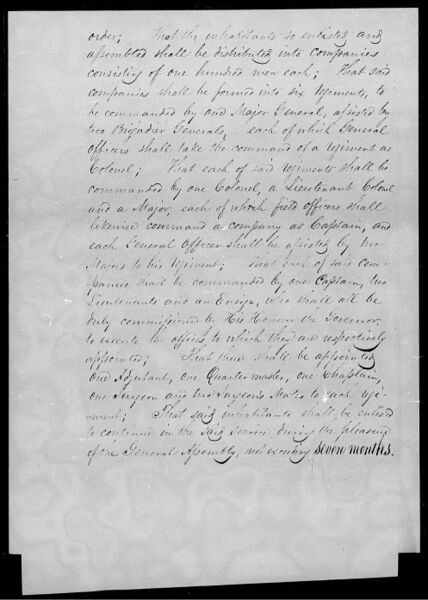 order; That the inhabitants so enlisted and
assembled shall be distributed into Companies
consisting of one hundred men each; That said
companies shall be formed into six regiments, to
be commanded by one Major General, assisted by
two Brigadier Generals, each of which General
officers shall take the command of a regiment as
Colonel; That each of said regiments shall be
commanded by one Colonel, a Lieutenant Colonel
and a Major, each of which field officers shall
likewise command a company as Captain, and
each General Officer shall be assisted by two
Majors to his regiment; that each of said com-
panies shall be commanded by one Captain, two
Lieutenants and an Ensign, who shall all be
duly commissioned by His Honour the Governor,
to execute the offices, to which they are respectively
appointed; That there shall be appointed
one Adjutant, one Quartermaster, one Chaplain,
one Surgeon and two Surgeon's Mates to each regi-
ment; That said inhabitants shall be enlisted
to continue in the said service during the pleasure
of the General Assembly, not exceeding seven months.